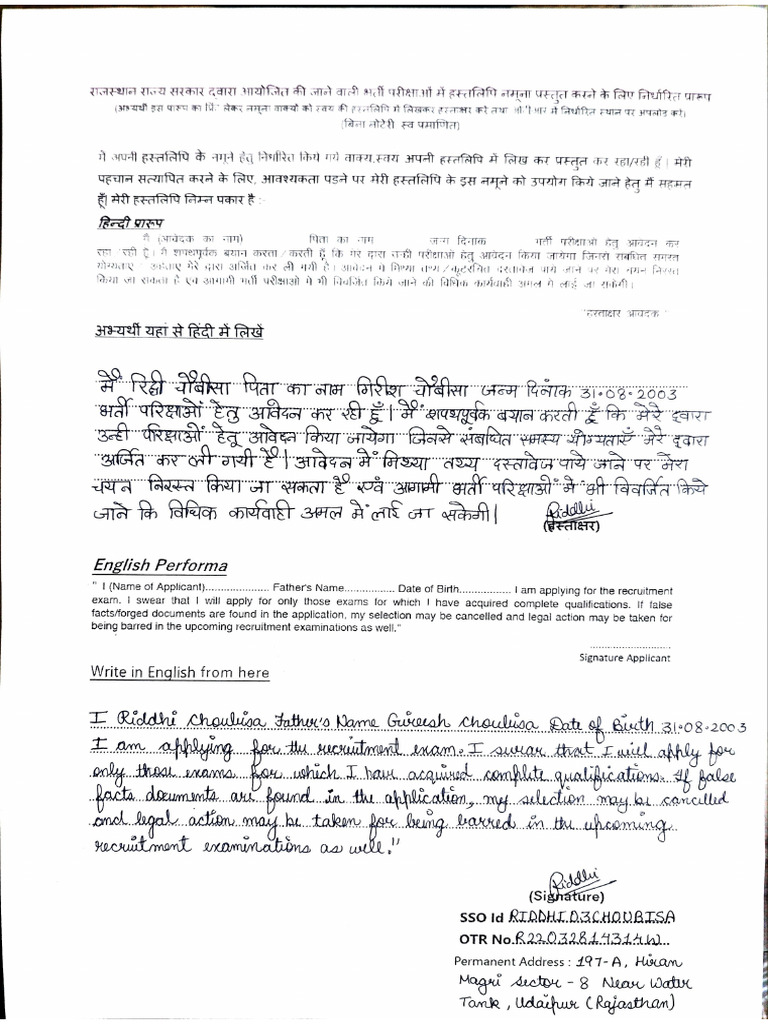 राजस्थान राज्य सरकार द्वारा आयोजित की जाने वाली भर्ती परीक्षाओं में हस्तलिपि नमूना प्रस्तुत करने के लिए निर्धारित प्रारूप
(अभ्यर्थी इस प्रारूप का लेकर नमूना वाक्यों को स्वयं की हस्तलिपि में लिखकर हस्ताक्षर करे तथा में निर्धारित स्थान पर अपलोड करे)
(बिना नोटेरी स्व प्रमाणित)
मैं अपनी हस्तलिपि के नमूने हेतु निर्धारित किये गये वाक्य,स्वयं अपनी हस्तलिपि में लिख कर प्रस्तुत कर रहा/रही हूँ । मेरी
पहचान सत्यापित करने के लिए, आवश्यकता पडने पर मेरी हस्तलिपि के इस नमूने को उपयोग किये जाने हेतु मैं सहमत
हूँ| मेरी हस्तलिपि निम्न पकार है :-
हिन्दी प्रारूप
मैं (आवेदक का नाम) पिता का नाम जन्म दिनांक भर्ती परीक्षाओं हेतु आवेदन कर
रहा रही हूँ। मैं शपथपूर्वक बयान करता / करती हूँ कि मेरे द्वारा उन्ही परीक्षाओं हेतु आवेदन किया जायेगा जिनसे संबंधित समस्त
योग्यताए मेरे द्वारा अर्जित कर ली गयी है। आवेदन में मिथ्या तथ्य / कूटरचित दस्तावेज पाये जाने पर मेरा चयन निरस्त
किया जा सकता है एवं आगामी भर्ती परीक्षाओं में भी विवर्जित किये जाने की विधिक कार्यवाही अमल में लाई जा सकेगी।
हस्ताक्षर आवेदक
अभ्यर्थी यहां से हिंदी में लिखें
मैं रिद्धी चौबीसा पिता का नाम गिरीश चौबीसा जन्म दिनांक 31-08-2003
भर्ती परिक्षाओं हेतु आवेदन कर रही हूँ। मैं शपथपूर्वक बयान करती हूँ कि मेरे द्वारा
उन्ही परिक्षाओं हेतू आवेदन किया जायेगा जिनसे संबधित समस्य योग्यताएँ मेरे द्वारा
अर्जित कर ली गयी है। आवेदन में मिथ्या तथ्य दस्तावेज पाये जाने पर मेरा
चयन निरस्त किया जा सकता है एवं आगामी भर्ती परिक्षाओं में भी विवर्जित किये
जाने कि विधिक कार्यवाही अमल में लाई जा सकेगी।
Riddhi
(हस्ताक्षर)
English Performa
" I (Name of Applicant)..................... Father's Name................ Date of Birth................. I am applying for the recruitment
exam. I swear that I will apply for only those exams for which I have acquired complete qualifications. If false
facts/forged documents are found in the application, my selection may be cancelled and legal action may be taken for
being barred in the upcoming recruitment examinations as well."
Signature Applicant
Write in English from here
I Riddhi Choubisa Father's Name Gireesh Choubisa Date of Birth 31-08-2003
I am applying for the recruitment exam. I swear that I will apply for
only those exams for which I have acquired complete qualifications. If false
facts documents are found in the application, my selection may be cancelled
and legal action may be taken for being barred in the upcoming
recruitment examinations as well."
Riddhi
(Signature)
SSO Id RIDDHI.D3CHOUBISA
OTR No.R22032814314W
Permanent Address : 197-A, Hiran
Magri Sector - 8 Near Water
Tank, Udaipur (Rajasthan)